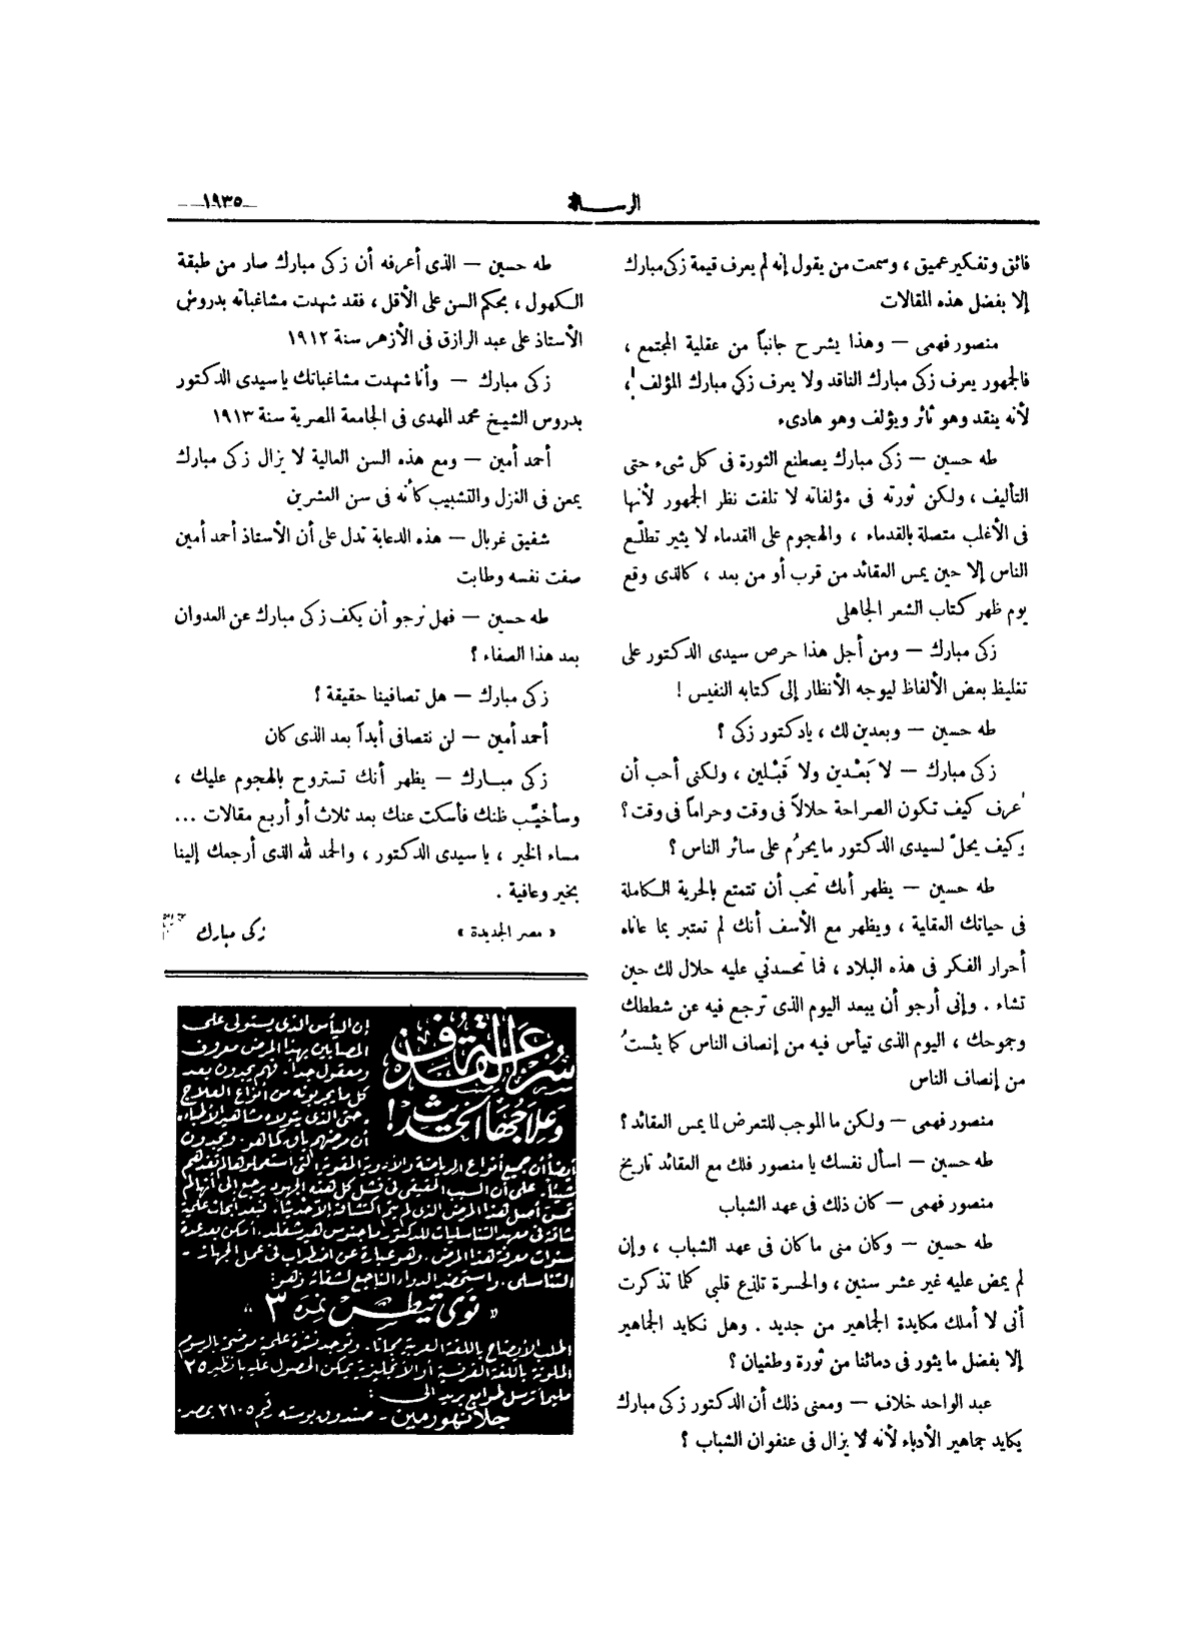 الرسالة
١٩٣٥
فائق وتفكير عميق ، وسمعت من يقول إنه لم يعرف قيمة زكى مبارك
إلا بفضل هذه المقالات
منصور فهمى — وهذا يشرح جانباً من عقلية المجتمع ،
فالجمهور يعرف زكى مبارك الناقد ولا يعرف زكي مبارك المؤلف ،
لأنه ينقد وهو ثائر ويؤلف وهو هادىء
طه حسين — زكى مبارك يصطنع الثورة فى كل شىء حتى
التأليف ، ولكن ثورته فى مؤلفاته لا تلفت نظر الجمهور لأنها
فى الأغلب متصلة بالقدماء ، والهجوم على القدماء لا يثير تطلّع
الناس إلا حين يمس العقائد من قرب أو من بعد ، كالذى وقع
يوم ظهر كتاب الشعر الجاهلى
زكى مبارك — ومن أجل هذا حرص سيدى الدكتور على
تغليظ بعض الألفاظ ليوجه الأنظار إلى كتابه النفيس !
طه حسين — وبعدين لك ، يادكتور زكى ؟
زكى مبارك — لا بَعْدين ولا قَبْلين ، ولكنى أحب أن
أعرف كيف تكون الصراحة حلالاً فى وقت وحراماً فى وقت ؟
وكيف يحلّ لسيدى الدكتور ما يحرُم على سائر الناس ؟
طه حسين — يظهر أنك تحب أن تتمتع بالحرية الكاملة
فى حياتك العقلية ، ويظهر مع الأسف أنك لم تعتبر بما عاناه
أحرار الفكر فى هذه البلاد ، فما تحسدني عليه حلال لك حين
تشاء . وإنى أرجو أن يبعد اليوم الذى ترجع فيه عن شططك
وجموحك ، اليوم الذى تيأس فيه من إنصاف الناس كما يئستُ
من إنصاف الناس
منصور فهمى — ولكن ما الموجب للتعرض لما يمس العقائد ؟
طه حسين — اسأل نفسك يا منصور فلك مع العقائد تاريخ
منصور فهمى — كان ذلك فى عهد الشباب
طه حسين — وكان منى ما كان فى عهد الشباب ، وإن
لم يمض عليه غير عشر سنين ، والحسرة تلذع قلبي كلما تذكرت
أنى لا أملك مكايدة الجماهير من جديد . وهل نكايد الجماهير
إلا بفضل ما يثور فى دمائنا من ثورة وطغيان ؟
عبد الواحد خلاف — ومعنى ذلك أن الدكتور زكى مبارك
يكايد جماهير الأدباء لأنه لا يزال فى عنفوان الشباب ؟
طه حسين — الذى أعرفه أن زكى مبارك صار من طبقة
الكهول ، بحكم السن على الأقل ، فقد شهدت مشاغباته بدروس
الأستاذ على عبد الرازق فى الأزهر سنة ١٩١٢
زكى مبارك — وأنا شهدت مشاغباتك يا سيدى الدكتور
بدروس الشيخ محمد المهدى فى الجامعة المصرية سنة ١٩١٣
أحمد أمين — ومع هذه السن العالية لا يزال زكى مبارك
يمعن فى الغزل والتشبيب كأنه فى سن العشرين
شفيق غربال — هذه الدعابة تدل على أن الأستاذ أحمد أمين
صفت نفسه وطابت
طه حسين — فهل نرجو أن يكف زكى مبارك عن العدوان
بعد هذا الصفاء ؟
زكى مبارك — هل تصافينا حقيقة ؟
أحمد أمين — لن نتصافى أبداً بعد الذى كان
زكى مبارك — يظهر أنك تستروح بالهجوم عليك ،
وسأخيّب ظنك فأسكت عنك بعد ثلاث أو أربع مقالات ...
مساء الخير ، يا سيدى الدكتور ، والحمد لله الذى أرجعك إلينا
بخير وعافية .
« مصر الجديدة » زكى مبارك
سُرعة القذف
وَعِلاجُهَا الحَديث !
إن اليأس الذى يستولى على
المصابين بهذا المرض معروف
ومعقول جداً. فهم يجدون بعد
كل ما يجربونه من أنواع العلاج
حتى الذى يتولاه مشاهير الأطباء
أن مرضهم باق كما هو. ويجدون
أيضاً أن جميع أنواع الرياضة والأدوية المقوية التى استعملوها لم تفدهم
شيئاً. على أن السبب الحقيقى فى فشل كل هذه الجهود يرجع إلى أنها لم
تمس أصل هذا المرض الذى لم يتم اكتشافه إلا حديثا. فبعد أبحاث علمية
شاقة فى معهد التناسليات للدكتور ماجنوس هيرشفلد. أمكن بعد عدة
سنوات معرفة هذا المرض. وهو عبارة عن اضطراب فى عمل الجهاز
التناسلى. واستحضر الدواء الناجع لشفائه وهو:
« نوى تيطس نمرة ٣ »
اطلب الإيضاح باللغة العربية مجانا. وتوجد نشرة علمية موضحة بالرسوم
الملونة باللغة الفرنسية أو الانجليزية يمكن الحصول عليها نظير ٢٥
مليما ترسل طوابع بريد الى :
جلانهورمين - صندوق بوسته رقم ٢١٠٥ بمصر.